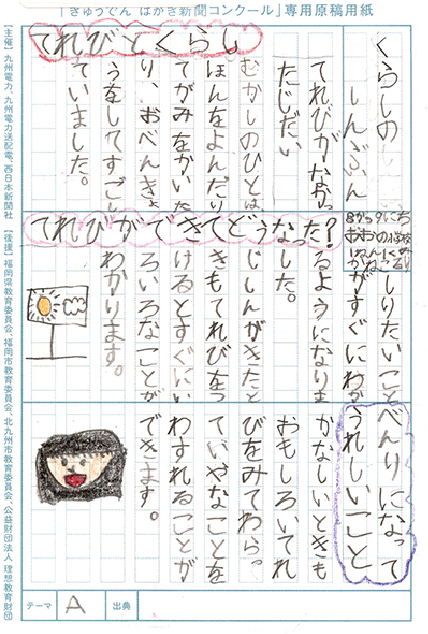 「きゅうでん はがき新聞コンクール」専用原稿用紙
くらしの
しんぶん
てれびとくらし
てれびがなかっ
たじだい
むかしのひとは、
ほんをよんだり
てがみをかいた
り、おべんきょ
うをしてすごし
ていました。
てれびができてどうなった?
しりたいこと
がすぐにわか
るようになりま
した。
じしんがきたと
きもてれびをつ
けるとすぐにい
ろいろなことが
わかります。
べんりになって
うれしいこと
かなしいときも
おもしろいてれ
びをみてわらっ
ていやなことを
わすれることが
できます。
【主催】九州電力、九州電力送配電、西日本新聞社 【後援】福岡県教育委員会、福岡市教育委員会、北九州市教育委員会、公益財団法人 理想教育財団
テーマ A 出典